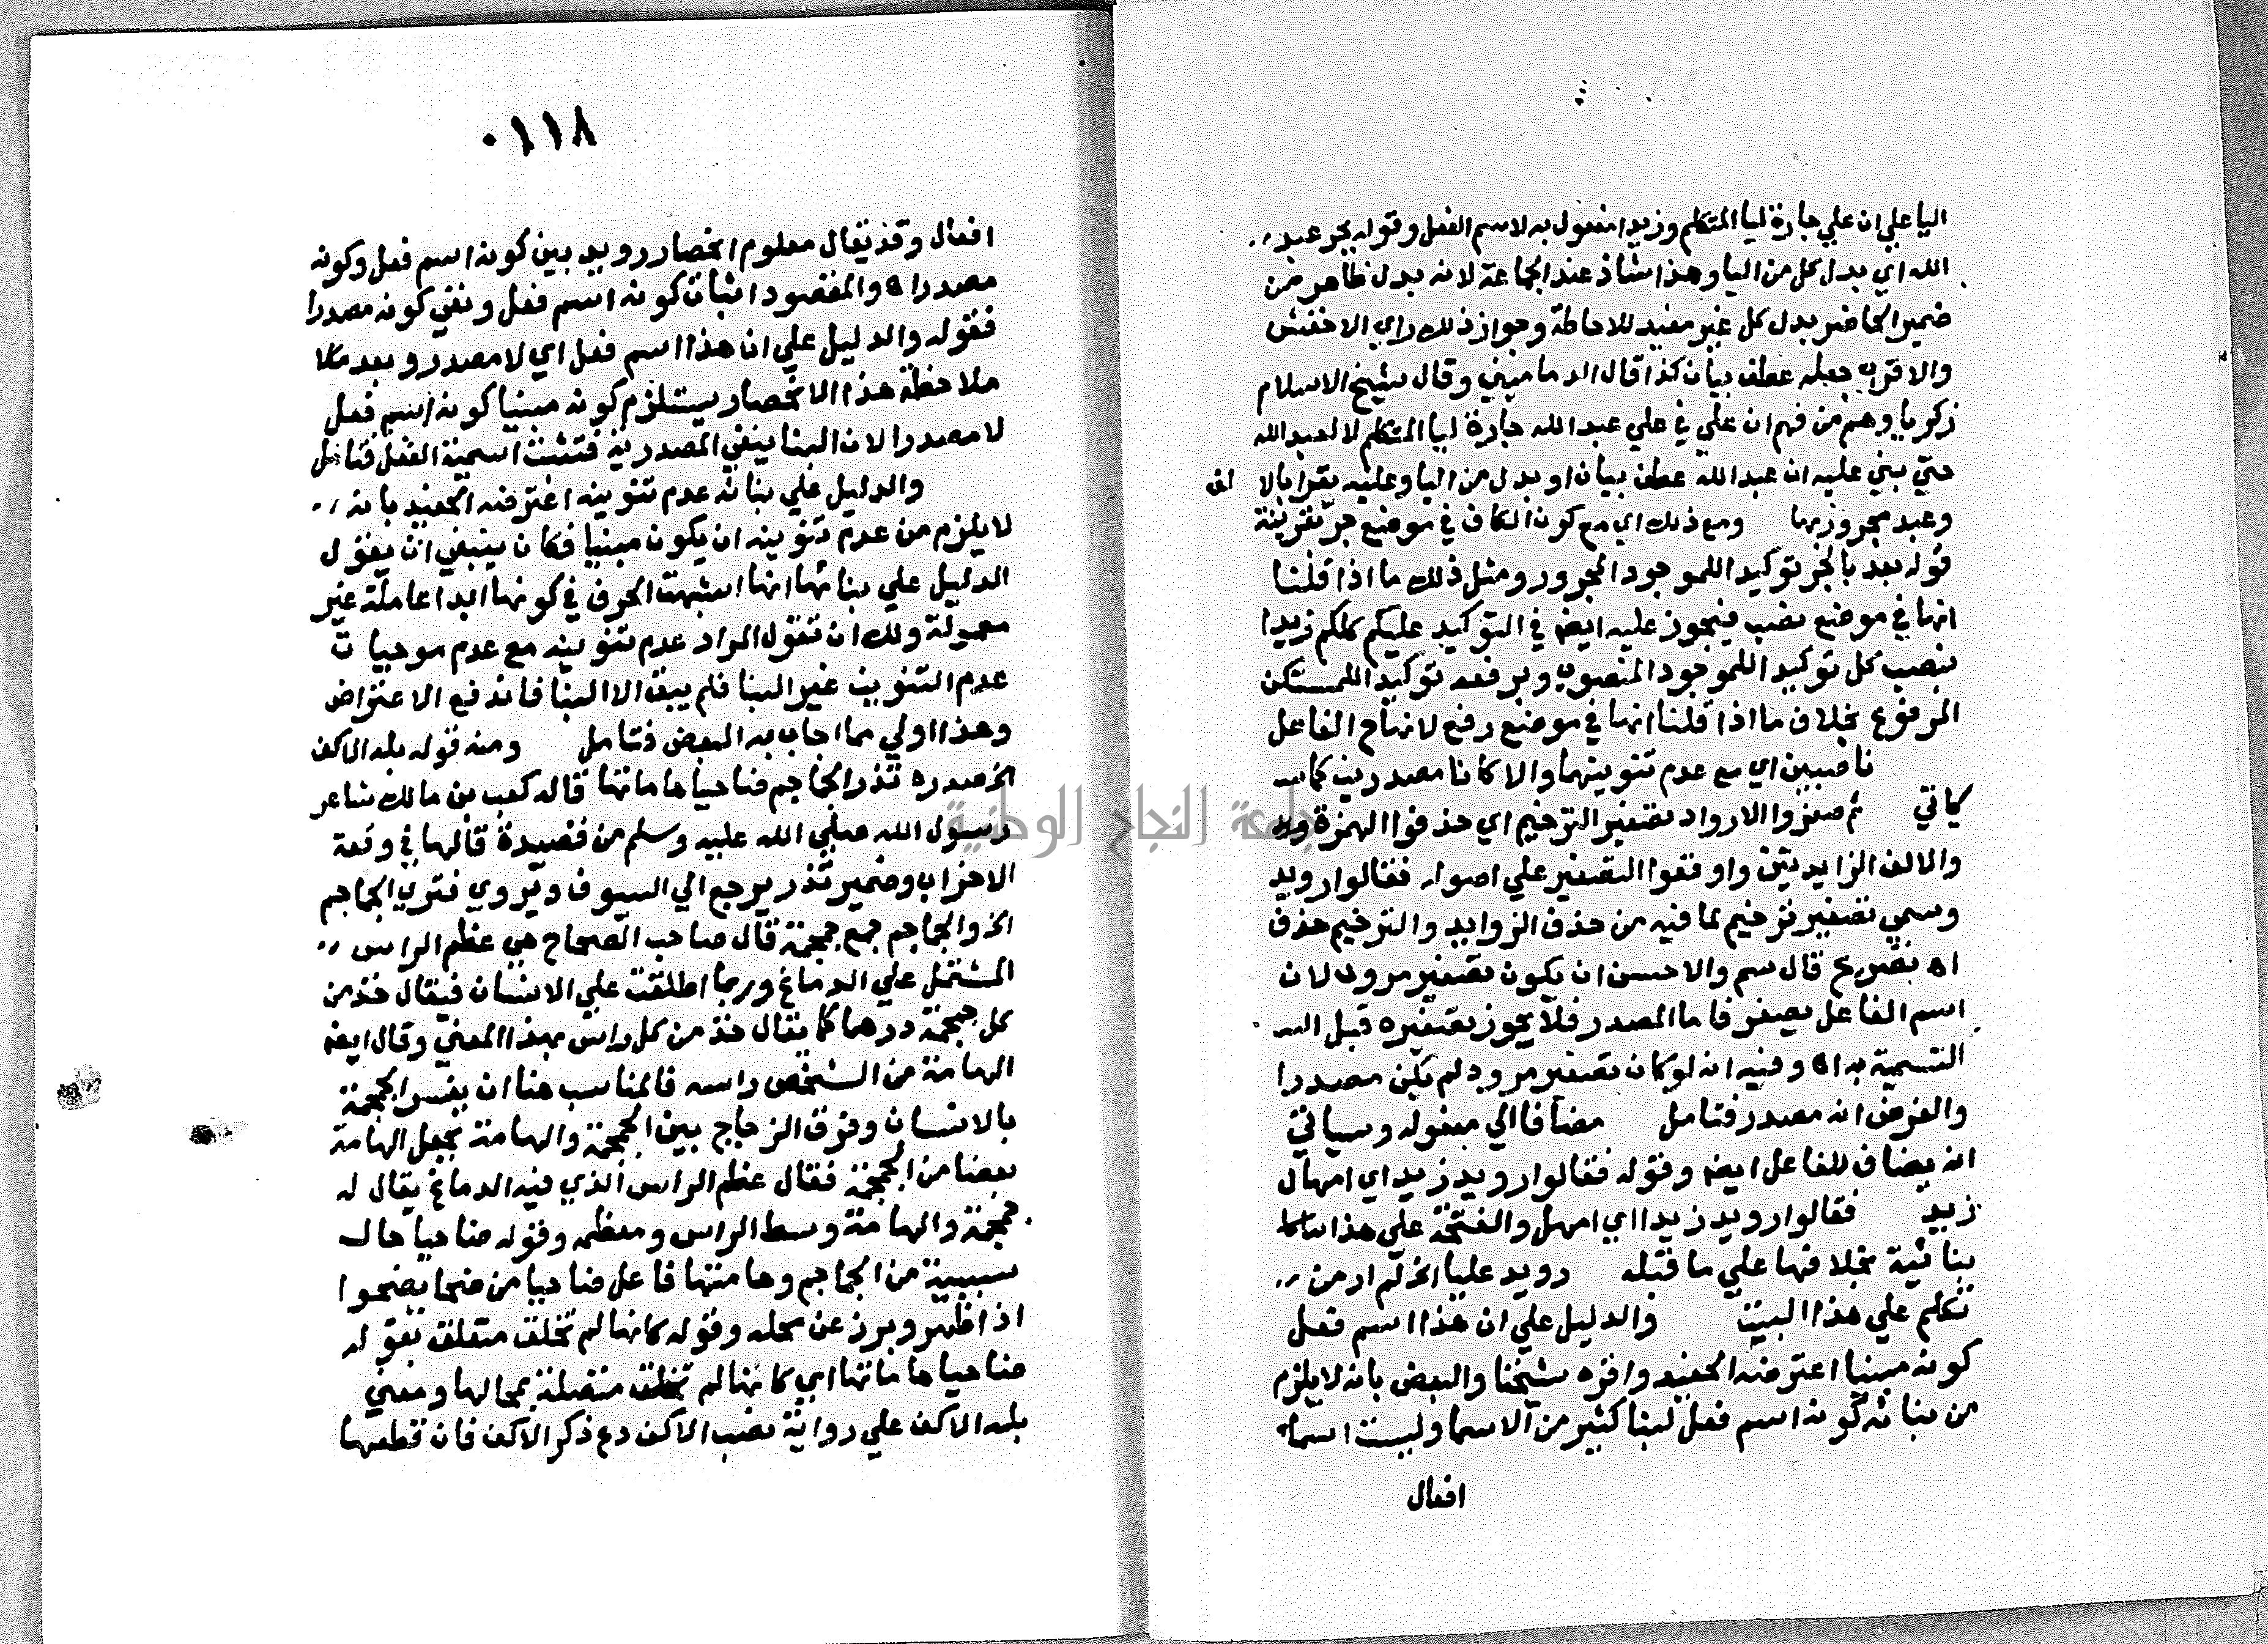 اليا علي ان علي جارة ليا المتكلم وزيدا مفعول به لاسم الفعل وقوله بجر عبد
الله اي بدل كل من اليا وهذا شاذ عند الجماعة لانه بدل ظاهر من
ضمير الحاضر بدل كل غير مفيد للاحاطة وجواز ذلك راي الاخفش
والاقرب جعله عطف بيان كذا قال الدماميني وقال شيخ الاسلام
زكريا وهم من فهم ان علي في علي عبد الله جارة ليا المتكلم لا لعبد الله
حتي بني عليه ان عبد الله عطف بيان او بدل من اليا وعليه يقرا بالا لف
وعبد مجرور بها ومع ذلك اي مع كون الكاف في موضع جر بقرينة
قوله بعد بالجر توكيدا للموجود المجرور ومثل ذلك ما اذا قلنا
انها في موضع نصب فيجوز عليه ايضا في التوكيد عليكم كلكم زيدا
بنصب كل توكيدا للموجود المنصوب وبرفعه توكيدا للمستكن
المرفوع بخلاف ما اذا قلنا انها في موضع رفع لانها ح الفاعل
ناصبين اي مع عدم تنوينهما والا كانا مصدرين كما
ياتي ثم صغروا الارواد تصغير الترخيم اي حذفوا الهمزة
والالف الزايدتين واوقعوا التصغير علي اصوله فقالوا رويد
وسمي تصغير ترخيم لما فيه من حذف الزوايد والترخيم حذف
اه تصريح قال سم والاحسن ان يكون تصغير مرود لان
اسم الفاعل يصغر فاما المصدر فلا يجوز تصغيره قبل
التسمية به اه وفيه انه لو كان تصغير مرود لم يكن مصدرا
والفرض انه مصدر فتامل مضافا الي مفعوله وسياتي
انه يضاف للفاعل ايضا وقوله فقالوا رويد زيد اي امهال
زيد فقالوا رويد زيدا اي امهل والفتحة علي هذا
بنائية بخلافها علي ما قبله رويد عليا الخ لم ار من
تكلم علي هذا البيت والدليل علي ان هذا اسم فعل
كونه مبنيا اعترضه الحفيد واقره شيخنا والبعض بانه لا يلزم
من بنائه كونه اسم فعل لبنا كثير من الاسما وليست اسما
افعال
٠١١٨
افعال وقد يقال معلوم انحصار رويد بين كونه اسم فعل وكونه
مصدرا اه والمقصود اثبات كونه اسم فعل ونفي كونه مصدرا
فقوله والدليل علي ان هذا اسم فعل اي لا مصدر وبعد
ملاحظة هذا الانحصار يستلزم كونه مبنيا كونه اسم فعل
لا مصدرا لان البنا ينفي المصدرية فتثبت اسمية الفعل فتامل
والدليل علي بنائه عدم تنوينه اعترضه الحفيد بانه
لا يلزم من عدم تنوينه ان يكون مبنيا فكان ينبغي ان يقول
الدليل علي بنائها انها اشبهت الحرف في كونها ابدا عاملة غير
معمولة ولك ان تقول المراد عدم تنوينه مع عدم موجبات
عدم التنوين غير البنا فلم يبق الا البنا فاندفع الاعتراض
وهذا اولي مما اجاب به البعض فتامل ومنه قوله بله الاكف
الخ صدره تذر الجماجم ضاحيا هاماتها قاله كعب بن مالك شاعر
رسول الله صلي الله عليه وسلم من قصيدة قالها في وقعة
الاحزاب وضمير تذر يرجع الي السيوف ويروي فتري الجماجم
الخ والجماجم جمع جمجمة قال صاحب الصحاح هي عظم الراس
المشتمل علي الدماغ وربما اطلقت علي الانسان فيقال خذ من
كل جمجمة درهما كما يقال خذ من كل راس بهذا المعني وقال ايضا
الهامة من الشخص راسه فالمناسب هنا ان يفسر الجمجمة
بالانسان وفرق الزجاج بين الجمجمة والهامة بجعل الهامة
بعضا من الجمجمة فقال عظم الراس الذي فيه الدماغ يقال له
جمجمة والهامة وسط الراس ومعظمه وقوله ضاحيا حال
سببية من الجماجم وهامتها فاعل ضاحيا من ضحا يضحوا
اذا ظهر وبرز عن محله وقوله كانها لم تخلق متعلق بقوله
ضاحيا هاماتها اي كانها لم تخلق متصلة بمحالها ومعني
بله الاكف علي رواية نصب الاكف دع ذكر الاكف فان قطعها
جامعة النجاح الوطنية